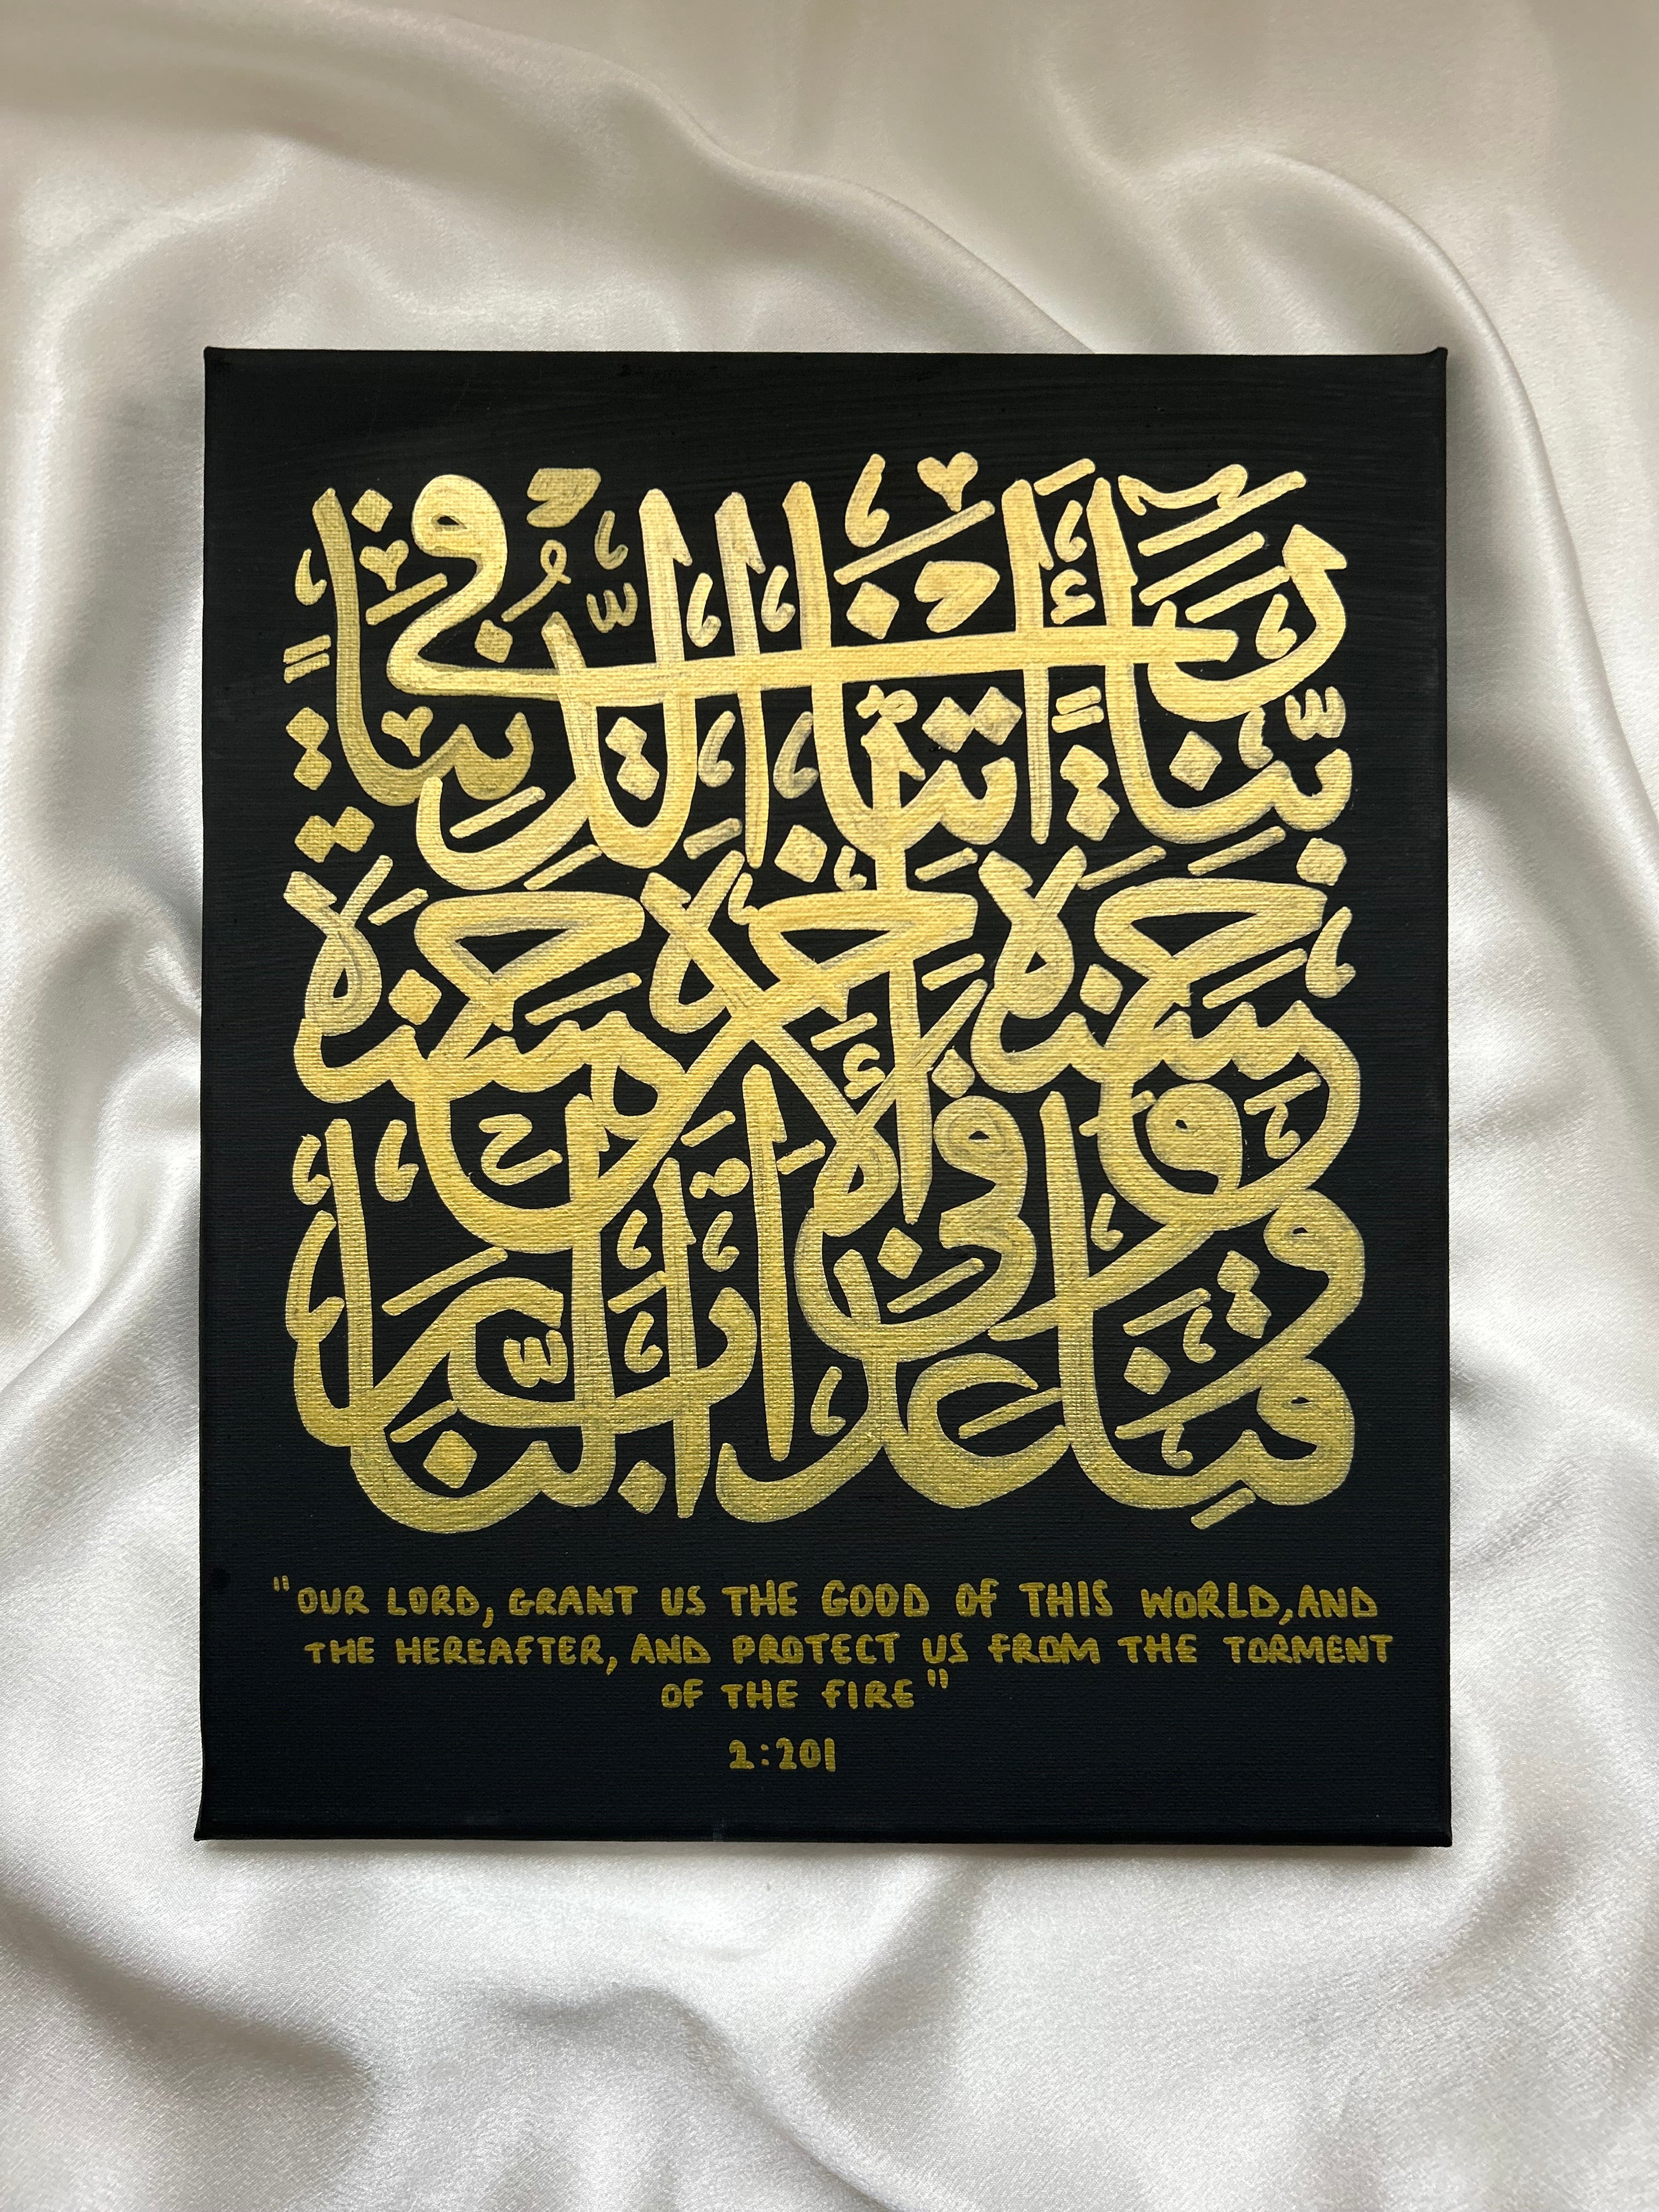 ربنا آتنا في الدنيا
حسنة وفي الآخرة حسنة
وقنا عذاب النار
"OUR LORD, GRANT US THE GOOD OF THIS WORLD, AND
THE HEREAFTER, AND PROTECT US FROM THE TORMENT
OF THE FIRE"
2:201